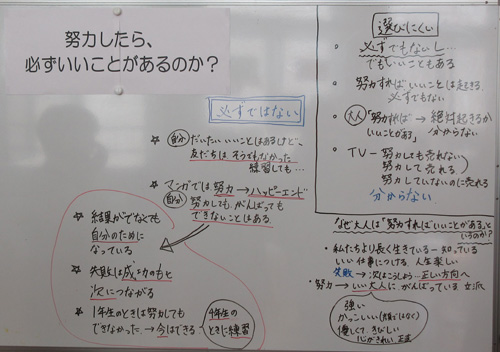 努力したら、
必ずいいことがあるのか？
必ずではない
☆ 自分 だいたいいいことはあるけど、
友だちは そうでもなかった
練習しても…
☆ マンガでは 努力→ハッピーエンド
自分 努力しても、がんばっても
できないことはある
☆ 結果がでなくても
自分のために
なっている
☆ 失敗は成功のもと
次につながる
☆ 1年生のときは努力しても
できなかった→今はできる
4年生の
ときに練習
選びにくい
必ずでもないし…
でもいいこともある
努力すればいいことは起きる
必ずでもない
大人 「努力すれば
いいことがある」
→ 絶対起きるか
分からない
TV－努力しても売れない
努力して売れる
努力していないのに売れる
分からない
なぜ大人は「努力すればいいことがある」と
いうのか？
・私たちより長く生きている－知っている
いい仕事につける 人生楽しい
失敗→次はこうしよう－正しい方向へ
・努力→いい大人に がんばっている 立派
強い
かっこいい(顔ではなく)
優しくて、きびしい
心がきれい、正直